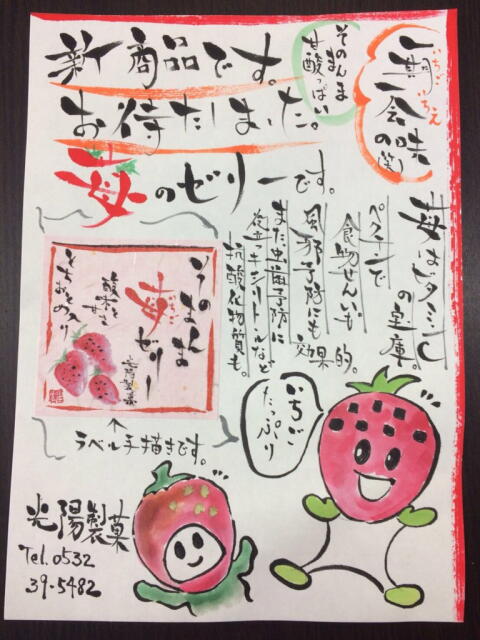 新商品です。
お待たしました。
苺のゼリーです。
そのまんま
甘酸っぱい
いちご いちえ
一期一会の味
苺はビタミンC
の宝庫。
ペクチンで
食物せんいも
風邪予防にも効果的。
また虫歯予防に
役立つキシリトールなど
抗酸化物質も。
そのまんま
苺ゼリー
光陽製菓
とちおとめ入り
ラベル手描きです。
いちご
たっぷり
光陽製菓
Tel.0532
39-5482